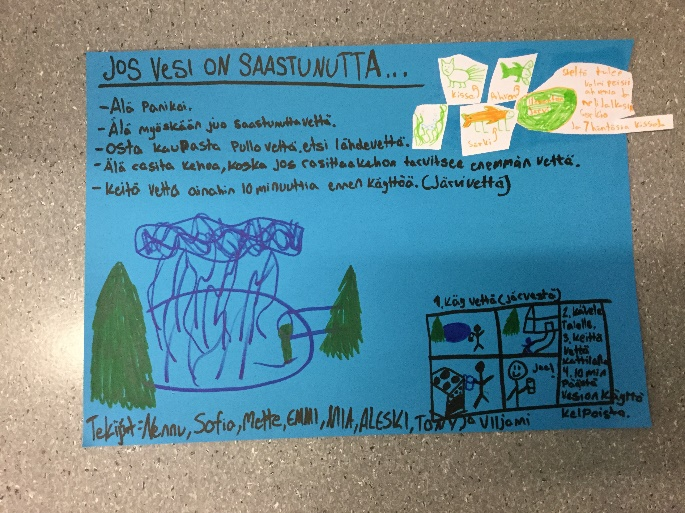 JOS VESI ON SAASTUNUTTA...
-Älä Panikoi.
-Älä myöskään juo saastunuttavettä.
-Osta kaupasta Pullovettä, etsi lähdevettä.
-Älä casita kehoa, koska jos rasittaakehoa tarvitsee enemmän vettä.
-Keitä vettä ainahin 10 minuuttia ennen käyttöä. (Järvivettä)
kissa
Ahven
särki
sieltä tulee
7 kiintässä kissat
1. Käy vettä (järvestä)
2. kävele
Talolle.
3. Keittä
vettä
kattilalla
4. 10 min
Päästä
vesi on käyttö
kelpoista.
Joo!
Tekijät: Nennu, Sofia, Mette, EMMI, MIA, ALEKSI, Tony ja Viljami